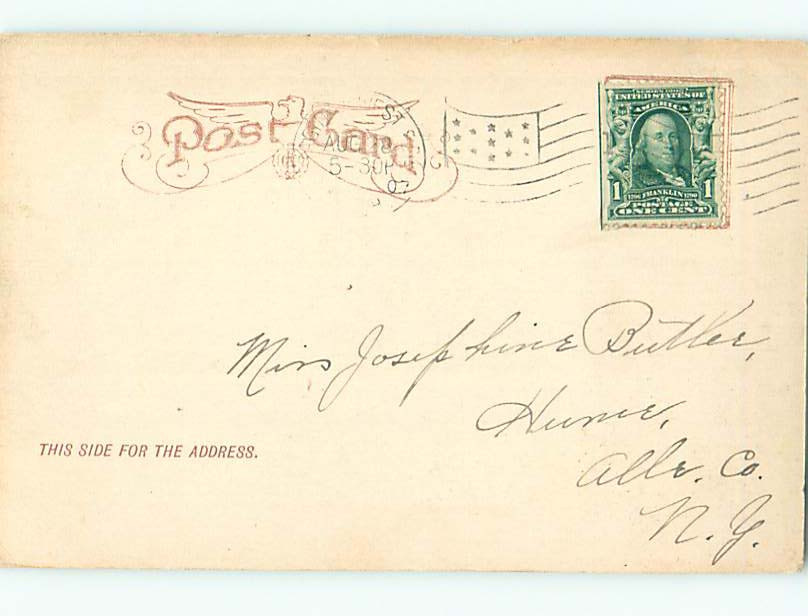 Post Card
ST
AUG
5-30P
07
SERIES 1902
UNITED STATES OF
AMERICA
1 1790 FRANKLIN 1790 1
POSTAGE
ONE CENT
Miss Josephine Butler,
Hume,
Alle. Co.
N.Y.
THIS SIDE FOR THE ADDRESS.